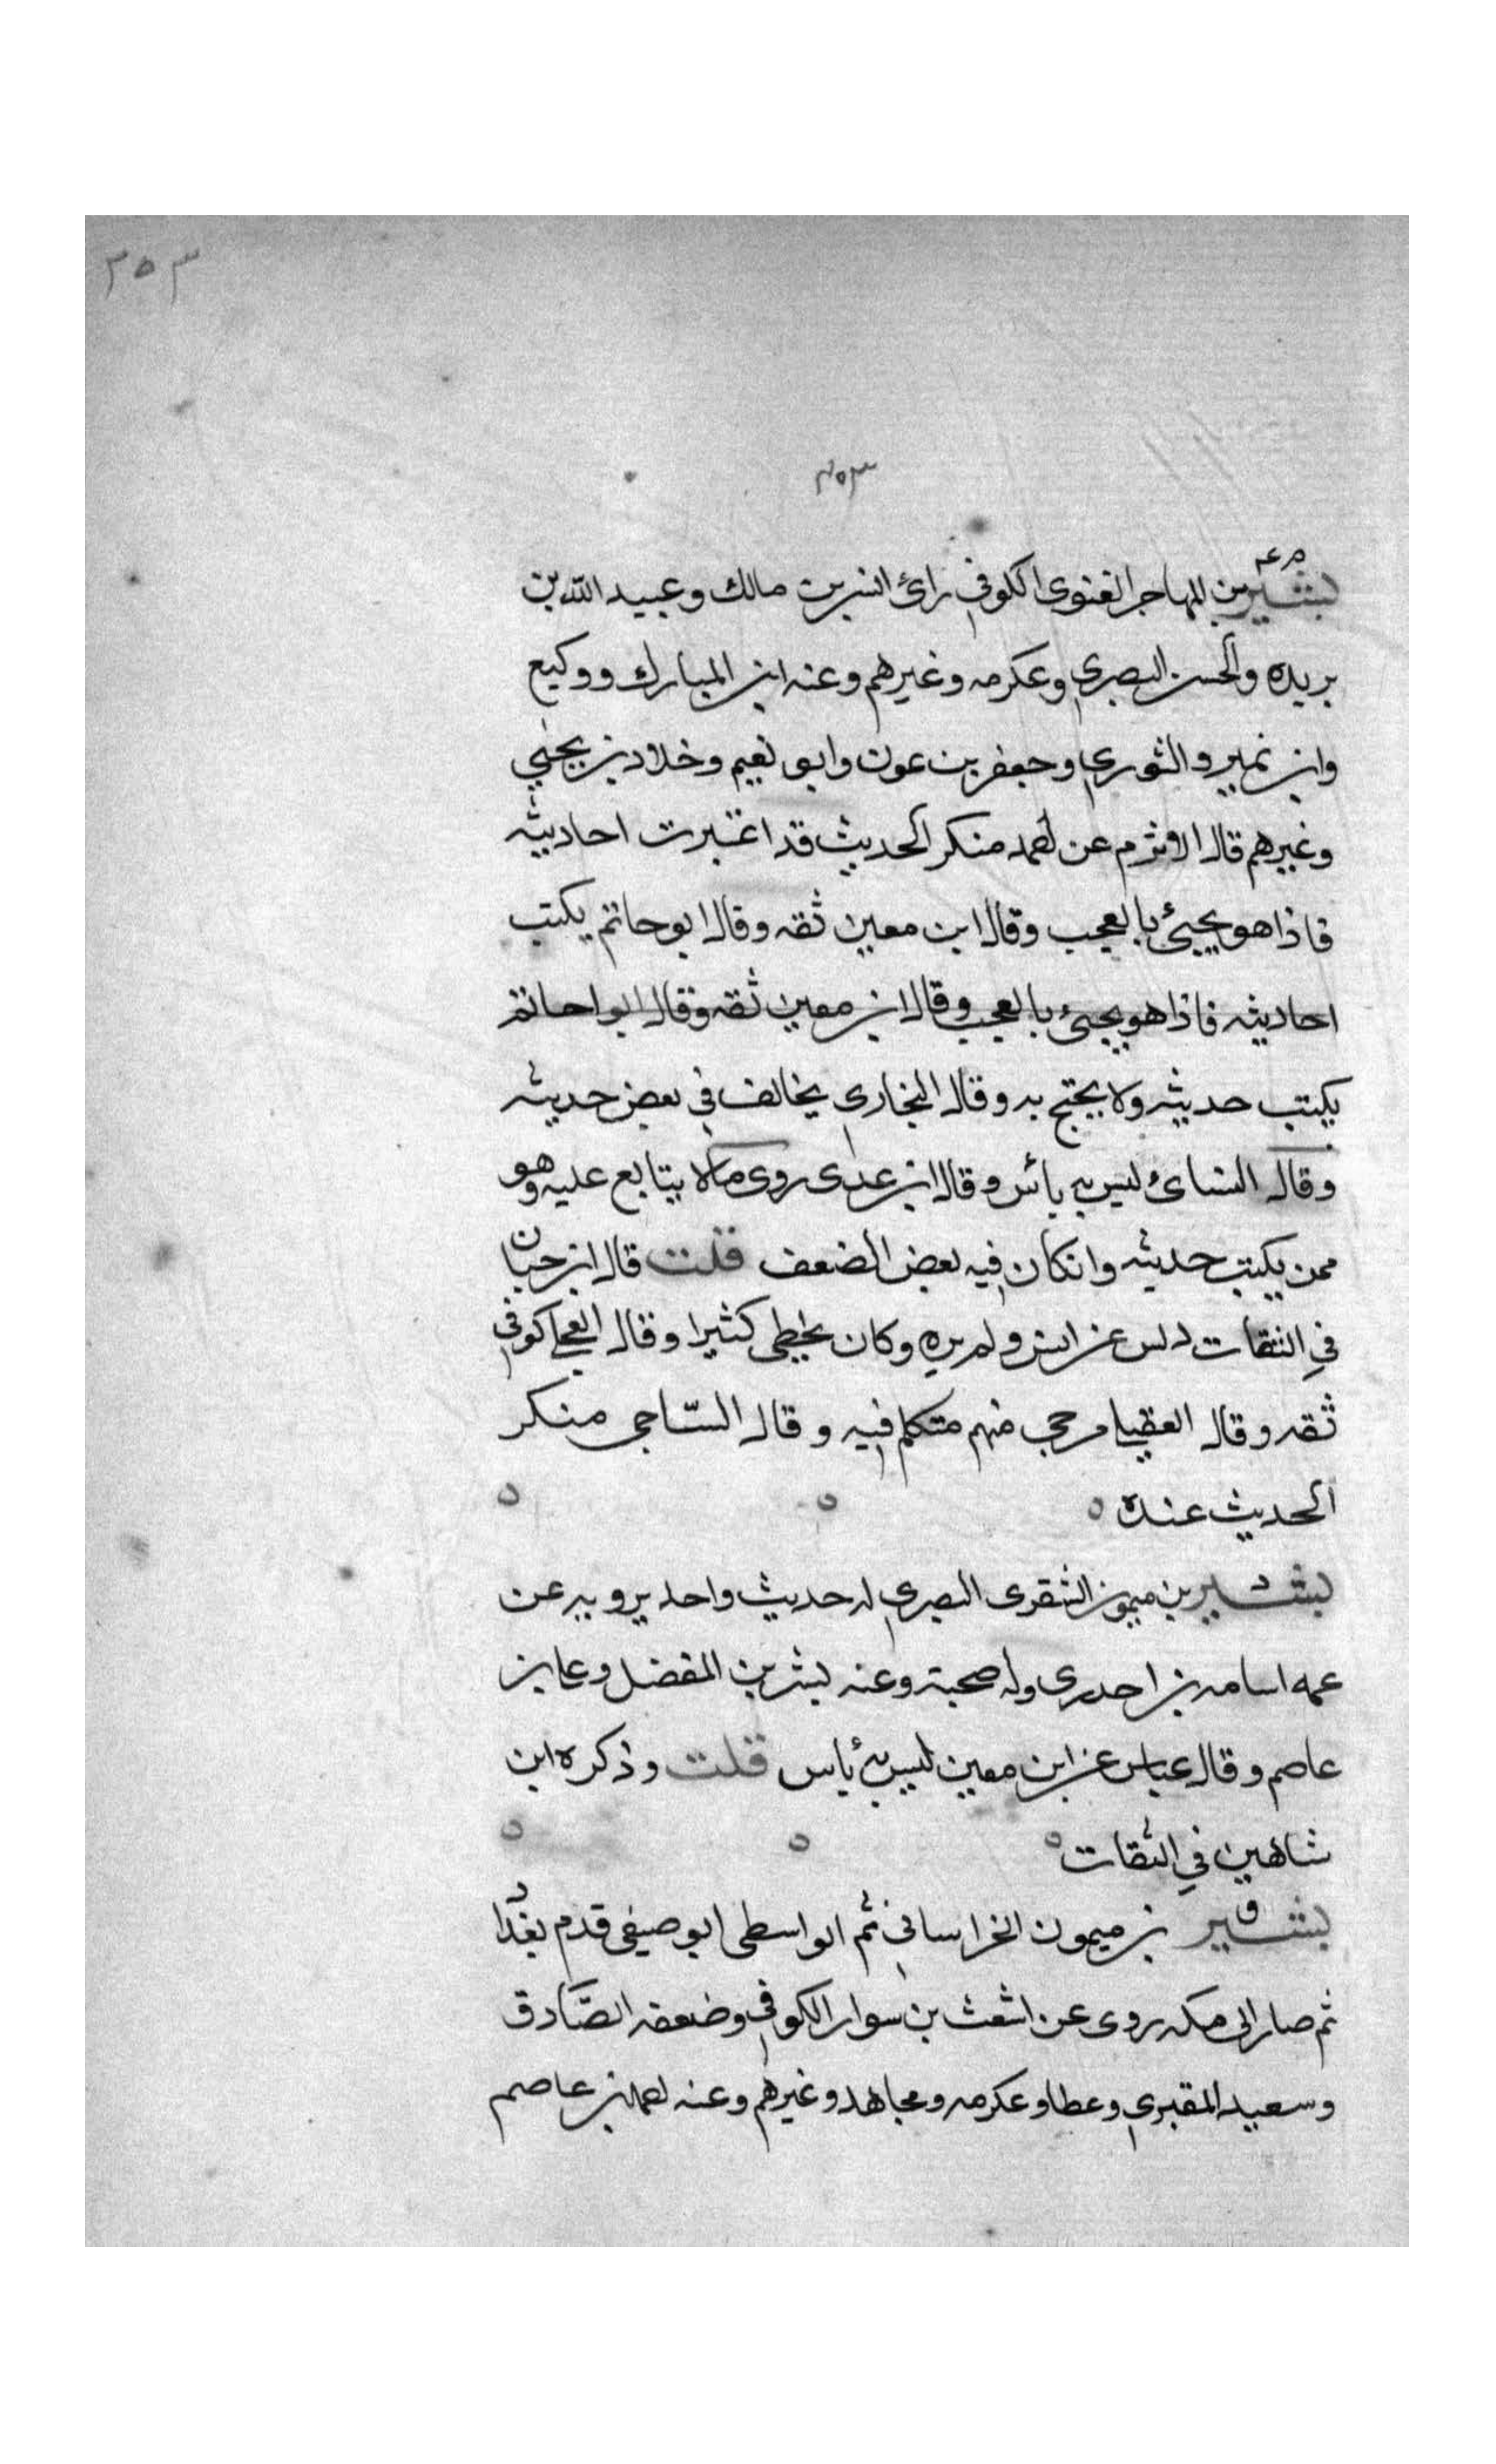 ٣٥٣
٣٥٣
م عــ
بشير بن المهاجر الغنوى الكوفي رائ انس بن مالك وعبيد الله بن
بريده والحسن البصري وعكرمه وغيرهم وعنه ابن المبارك ووكيع
وابن نمير والثوري وجعفر بن عون وابو نعيم وخلاد بن يحيي
وغيرهم قال الاثرم عن احمد منكر الحديث قد اعتبرت احاديثه
فاذا هو يجيئ بالعجب وقال ابن معين ثقه وقال ابو حاتم يكتب
احاديثه فاذا هو يجيئ بالعجب وقال ابن معين ثقه وقال ابوا حاتم
يكتب حديثه ولا يحتج به وقال البخاري يخالف في بعض حديثه
وقال النسائ ليس به بأس وقال ابن عدى روى مالا يتابع عليه وهو
ممن يكتب حديثه وانكان فيه بعض الضعف قلت قال ابن حبان
في الثقات دلس عن انس ولم يره وكان يخطى كثيرا وقال العجلي كوفي
ثقه وقال العقيلي مرجى منهم متكلم فيه وقال السّاجى منكر
الحديث عنده ه
د
بشير بن ميمون الشقرى البصري له حديث واحد يرويه عن
عمه اسامه بن اخدرى وله صحبة وعنه بشر بن المفضل وعلى بن
عاصم وقال عباس عن ابن معين ليس به بأس قلت وذكره ابن
شاهين في الثقات ه
ق
بشير بن ميمون الخراساني ثم الواسطى ابو صيفى قدم بغداد
ثم صار الى مكه روى عن اشعث بن سوار الكوفي وضعفه الصّادق
وسعيد المقبري وعطا وعكرمه ومجاهد وغيرهم وعنه احمد بن عاصم